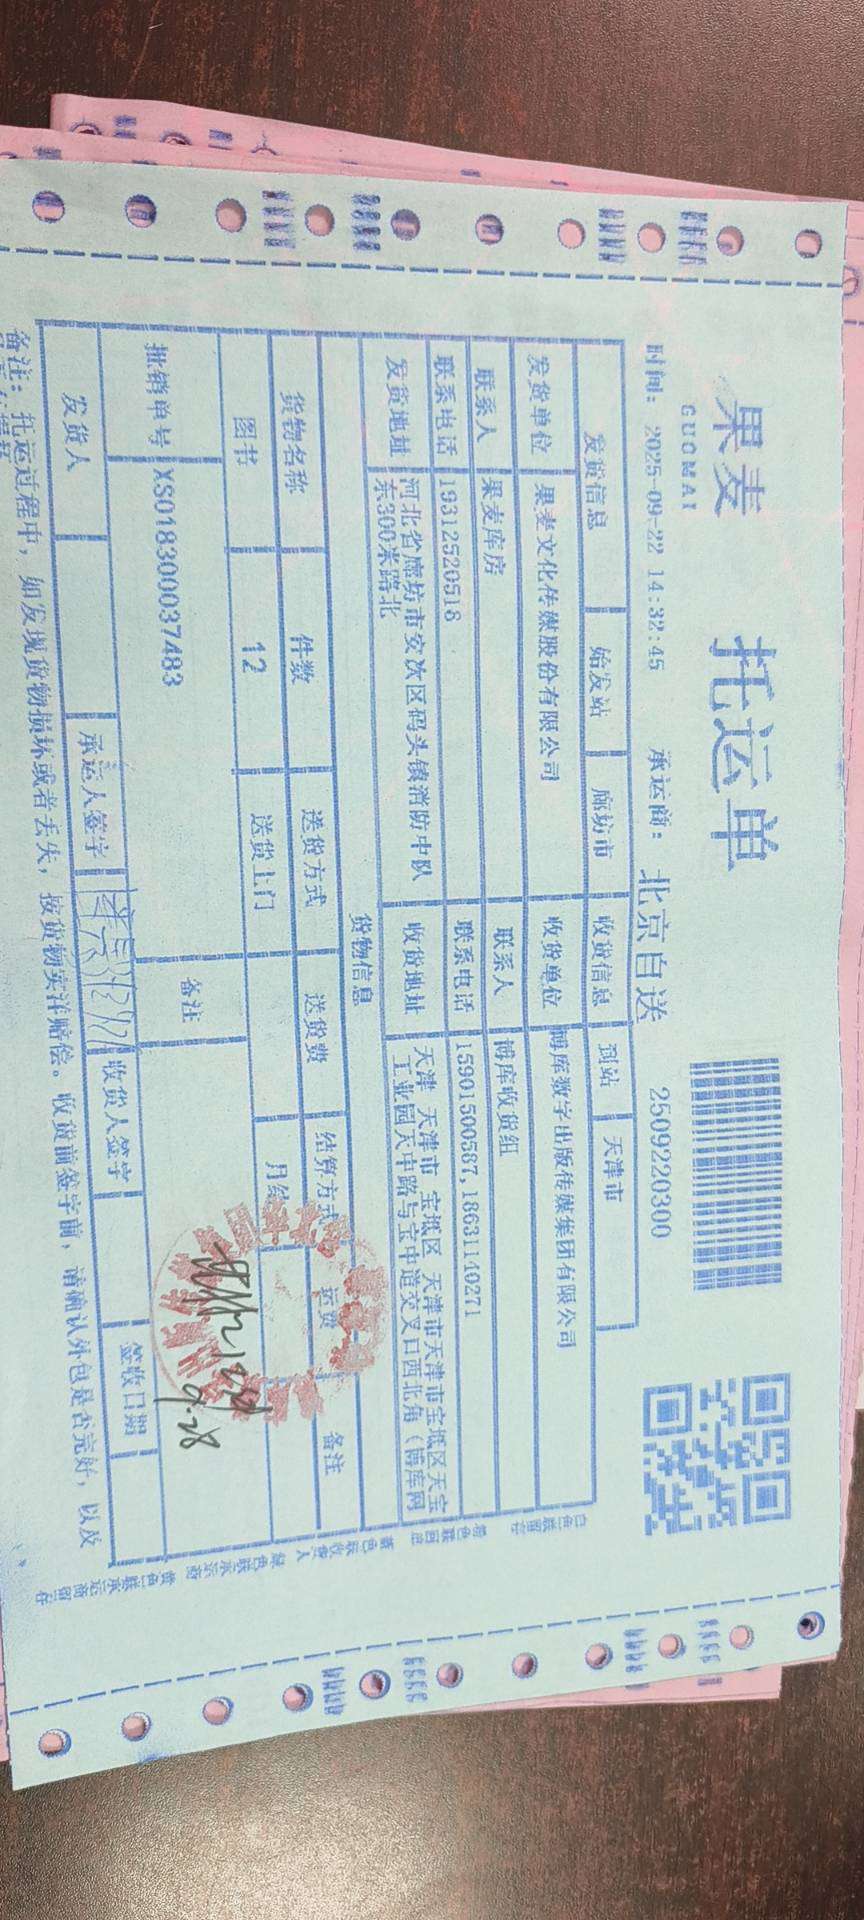 果麦
GUOMAI
托运单
2509220300
时间: 2025-09-22 14:32:45 承运商: 北京自送
发货信息 始发站 廊坊市 收货信息 到站 天津市
发货单位 果麦文化传媒股份有限公司 收货单位 博库数字出版传媒集团有限公司
联系人 果麦库房 联系人 博库收货组
联系电话 19312520518 联系电话 15901500587,18631140271
发货地址 河北省廊坊市安次区码头镇消防中队
东300米路北
收货地址 天津 天津市 宝坻区 天津市天津市宝坻区天宝
工业园天中路与宝中道交叉口西北角(博库网
货物信息
货物名称 件数 送货方式 送货费 结算方式 运费 备注
图书 12 送货上门 月结
批销单号 XS018300037483 备注
9.28
发货人 承运人签字 收货人签字 签收日期
备注: 托运过程中, 如发现货物损坏或者丢失, 按货物实洋赔偿。收货前签字前, 请确认外包是否完好, 以及